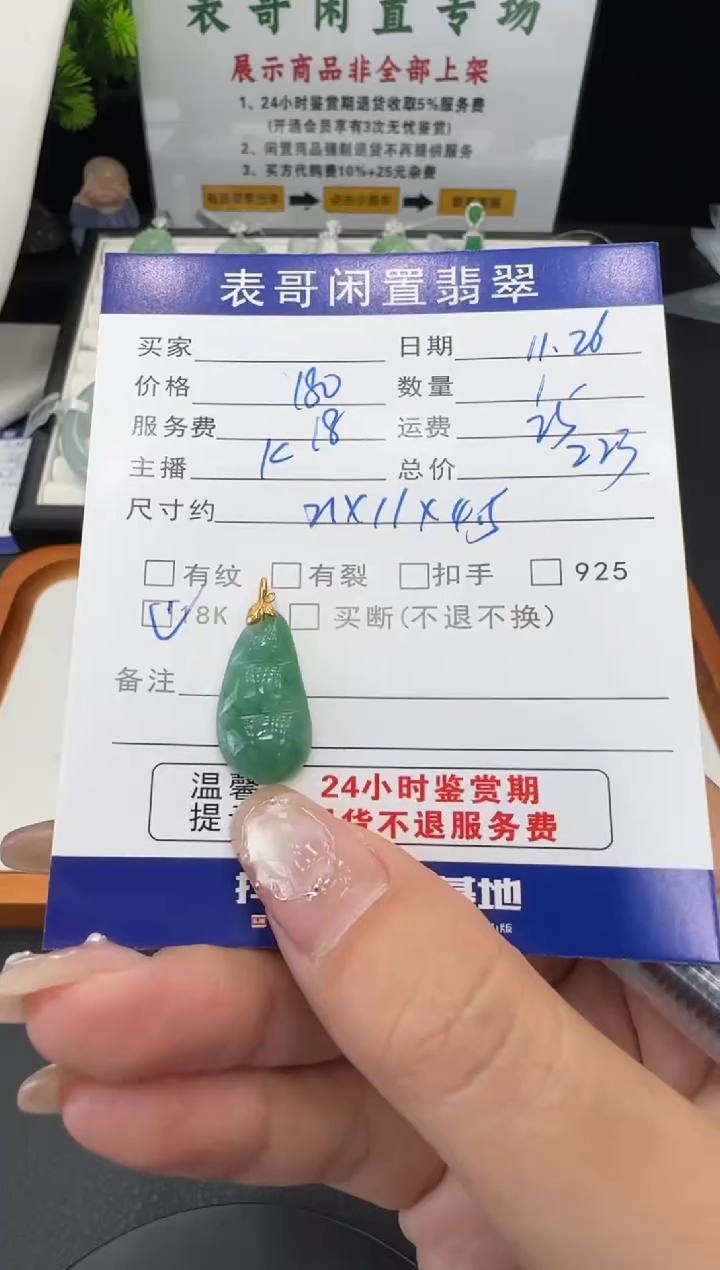 表哥闲置专场
展示商品非全部上架
1、24小时鉴赏期退货收取5%服务费
(开通会员享有3次无忧鉴赏)
2、闲置商品强制退货不再提供服务
3、买方代购费10%+25元杂费
表哥闲置翡翠
买家 日期 11.26
价格 180 数量 1
服务费 18 运费 25
主播 K 总价 223
尺寸约 21X11X4.5
有纹 有裂 扣手 925
18K 买断(不退不换)
备注
温馨 24小时鉴赏期
提 货不退服务费
基地